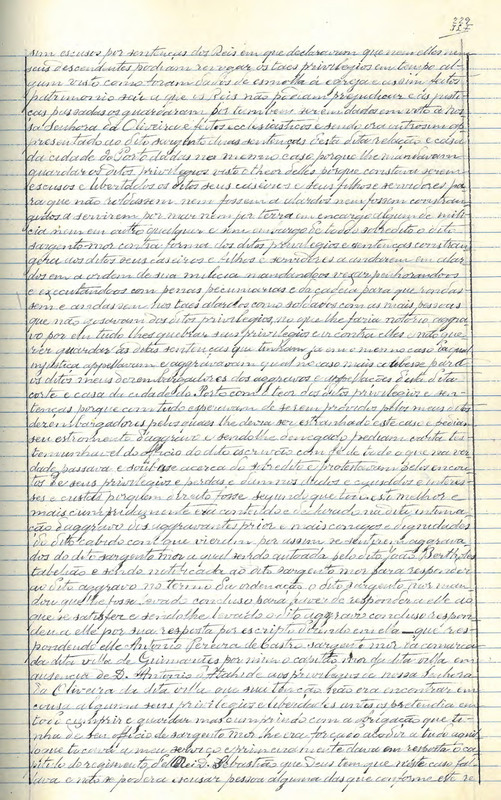 229
317
sem escusos por sentenças dos Reis em que declararam que nem elles nem
seus descendentes podiam revogar os taes privilegios em tempo al-
gum visto como foram dados de esmolla á egreja e assim
patrimonio seu a que os Reis não podiam prejudicar e as justi-
ças passadas os guardaram por tambem serem dados em voto a Nos-
sa Senhora da Oliveira e fructos ecclesiasticos e sendo ora outrosim a-
presentado ao dito sargento duas sentenças desta dita relação e casa
da cidade do Porto dadas no mesmo caso porque lhe mandavam
guardar os ditos privilegios visto o theor delles porque constava serem
escusos e libertados os ditos seus caseiros e seus filhos e servidores pa-
ra que não roldassem nem fossem a alardos nem fossem constran-
gidos a servirem por mar nem por terra em encargo algum de mili-
cia nem em outro qualquer e sem embargo de todo o sobredito o dito
sargento mor contra forma dos ditos privilegios e sentenças constran-
gera aos ditos seus caseiros e filhos e servidores a andarem em alar-
dos em a ordem de sua milicia mandando-os vexar penhorando-os
e executando-os com penas pecuniarias e de cadeia para que rondas-
sem e andassem nos taes alardos como soldados com as mais pessoas
que não gosavam dos ditos privilegios, no que lhe faria notorio aggra-
vo por em tudo lhes quebrar seus privilegios e ir contra elles e não que-
rer guardar as ditas sentenças que tinham já em o mesmo caso pa que
appellavam e aggravavam qual no caso mais coubesse para
os ditos meus dezembargadores dos aggravos e appellações da dita
corte e casa da cidade do Porto com o theor dos ditos privilegios e sen-
tenças porque com tudo esperavam de serem providos pelos meus ditos
dezembargadores pelos quaes lhe devia ser estranhado este caso e pediam
seu estromento d'aggravo e sendo-lhe denegado pediam carta tes-
temunhavel do officio do dito escrivão com fé de tudo o que na ver-
dade passava e soubesse acerca do sobredito e protestavam pelos encor-
tos de seus privilegios e perdas e damnos
se e custas por quem direito fosse segundo que tudo isto melhor e
mais cumpridamente era contheudo e declarado na dita intima-
ção d'aggravo dos aggravantes prior e mais conegos e dignidades
do dito cabido com que vieram por assim se sentirem aggrava-
dos do dito sargento mor a qual sendo autuada pelo dito João
tabelião e sendo notificada ao dito sargento mor para responder
ao dito aggravo no termo da ordenação o dito sargento mor man-
dou que lhe fosse levado concluso para haver de responder a elle ao
que se satisfez e sendo-lhe levado o dito aggravo concluso respon-
deu a elle por sua resposta por escripto dizendo em ella — que res-
pondendo elle Antonio Pereira de Castro sargento mor da comarca
da dita villa de Guimarães por mim o capitão mor da dita villa em
ausencia de D. Antonio aos privilegios de nossa Senhora
da Oliveira da dita villa que sua tenção não era encontrar em
cousa alguma seus privilegios e liberdades antes os pretendia em
todo cumprir e guardar mas cumprindo com a obrigação que ti-
nha de seu officio de sargento mor lhe era forçado acodir a tudo aquil-
lo que tocava a meu serviço e primeiramente dava em resposta o ca-
pitulo do regimento de El Rei D. Sebastião que Deus tem que neste caso fal-
lava o não se poderá escusar pessoa alguma das que conforme este re